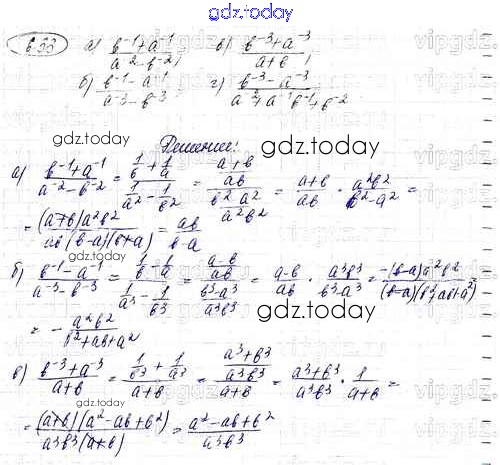 gdz.today
633 а) (b⁻¹+a⁻¹)/(a⁻²-b⁻²); в) (b⁻³+a⁻³)/(a+b);
б) (b⁻¹-a⁻¹)/(a⁻³-b⁻³); г) (b⁻³-a⁻³)/(a⁻²+a⁻¹b⁻¹+b⁻²)
gdz.today
Решение: gdz.today
а) (b⁻¹+a⁻¹)/(a⁻²-b⁻²) = (1/b+1/a)/(1/a²-1/b²) = ((a+b)/ab)/((b²-a²)/a²b²) = (a+b)/ab · a²b²/(b²-a²) =
= (a+b)a²b²/ab(b-a)(b+a) = ab/(b-a)
gdz.today
б) (b⁻¹-a⁻¹)/(a⁻³-b⁻³) = (1/b-1/a)/(1/a³-1/b³) = ((a-b)/ab)/((b³-a³)/a³b³) = (a-b)/ab · a³b³/(b³-a³) = -(b-a)a²b²/(b-a)(b²+ab+a²)
gdz.today
= - a²b²/(b²+ab+a²)
в) (b⁻³+a⁻³)/(a+b) = (1/b³+1/a³)/(a+b) = ((a³+b³)/a³b³)/(a+b) = (a³+b³)/a³b³ · 1/(a+b) =
gdz.today
= (a+b)(a²-ab+b²)/a³b³(a+b) = (a²-ab+b²)/a³b³
gdz.today